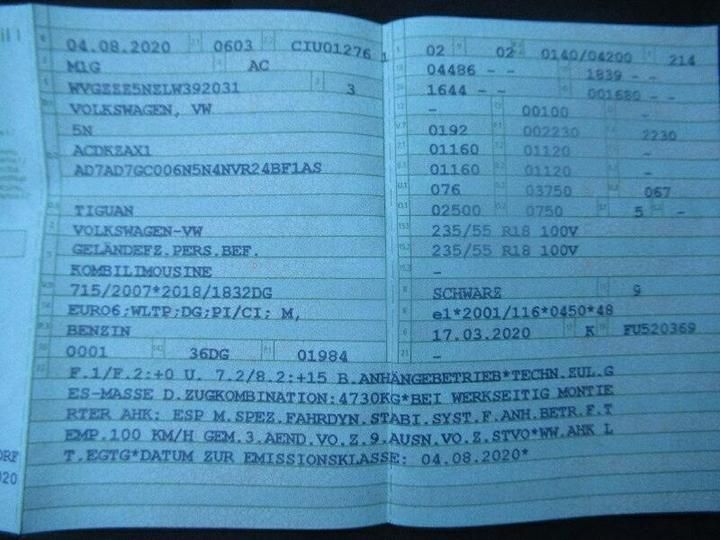 04.08.2020 0603 CIU01276 1
M1G AC
WVGZZZ5NZLW392031 3
VOLKSWAGEN, VW
5N
ACDKZAX1
AD7AD7GC006N5N4NVR24BF1AS
TIGUAN
VOLKSWAGEN-VW
GELÄNDEFZ.PERS.BEF.
KOMBILIMOUSINE
715/2007*2018/1832DG
EURO6;WLTP;DG;PI/CI; M,
BENZIN
0001 36DG 01984
02 02 0140/04200 214
04486 - - 1839 - -
1644 - - 001680 - -
- 00100 -
0192 002230 2230
01160 01120 -
01160 01120 -
076 03750 067
02500 0750 5 -
235/55 R18 100V
235/55 R18 100V
-
SCHWARZ 9
e1*2001/116*0450*48
17.03.2020 K FU520369
-
F.1/F.2:+0 U. 7.2/8.2:+15 B.ANHÄNGEBETRIEB*TECHN.ZUL.G
ES-MASSE D.ZUGKOMBINATION:4730KG*BEI WERKSEITIG MONTIE
RTER AHK: ESP M.SPEZ.FAHRDYN.STABI.SYST.F.ANH.BETR.F.T
EMP.100 KM/H GEM.3.AEND.VO.Z.9.AUSN.VO.Z.STVO*WW.AHK L
T.EGTG*DATUM ZUR EMISSIONSKLASSE: 04.08.2020*
ORF
020